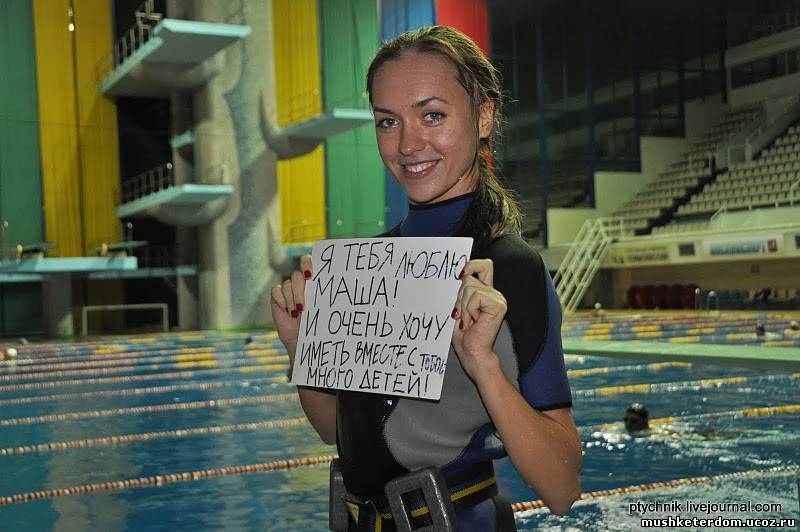 Я ТЕБЯ ЛЮБЛЮ
МАША!
И ОЧЕНЬ ХОЧУ
ИМЕТЬ ВМЕСТЕ С ТОБОЙ
МНОГО ДЕТЕЙ!
ptychnik livejournal.com
mushketerdom.ucoz.ru